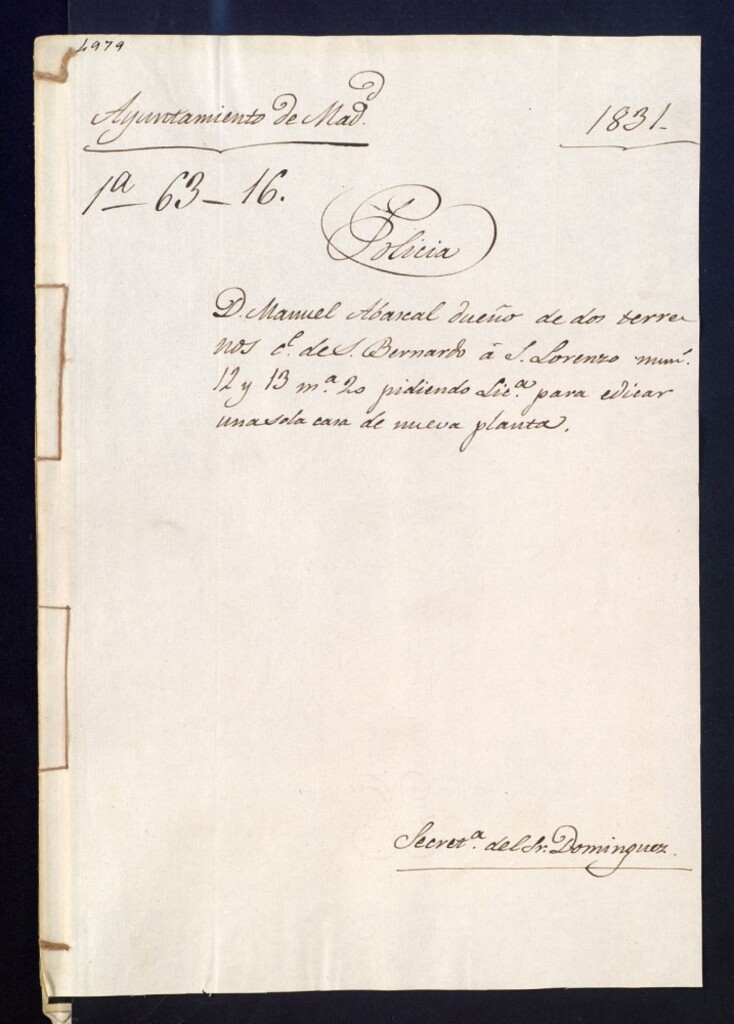 4979
Ayuntamiento de Mad.d
1831
1a 63-16.
Policia
D. Manuel Abascal dueño de dos terre
nos c.e de S. Bernardo á S. Lorenzo num.
12 y 13 m.a 20 pidiendo Lic.a para edicar
una sola casa de nueva planta.
Secret.a del Sr. Dominguez.